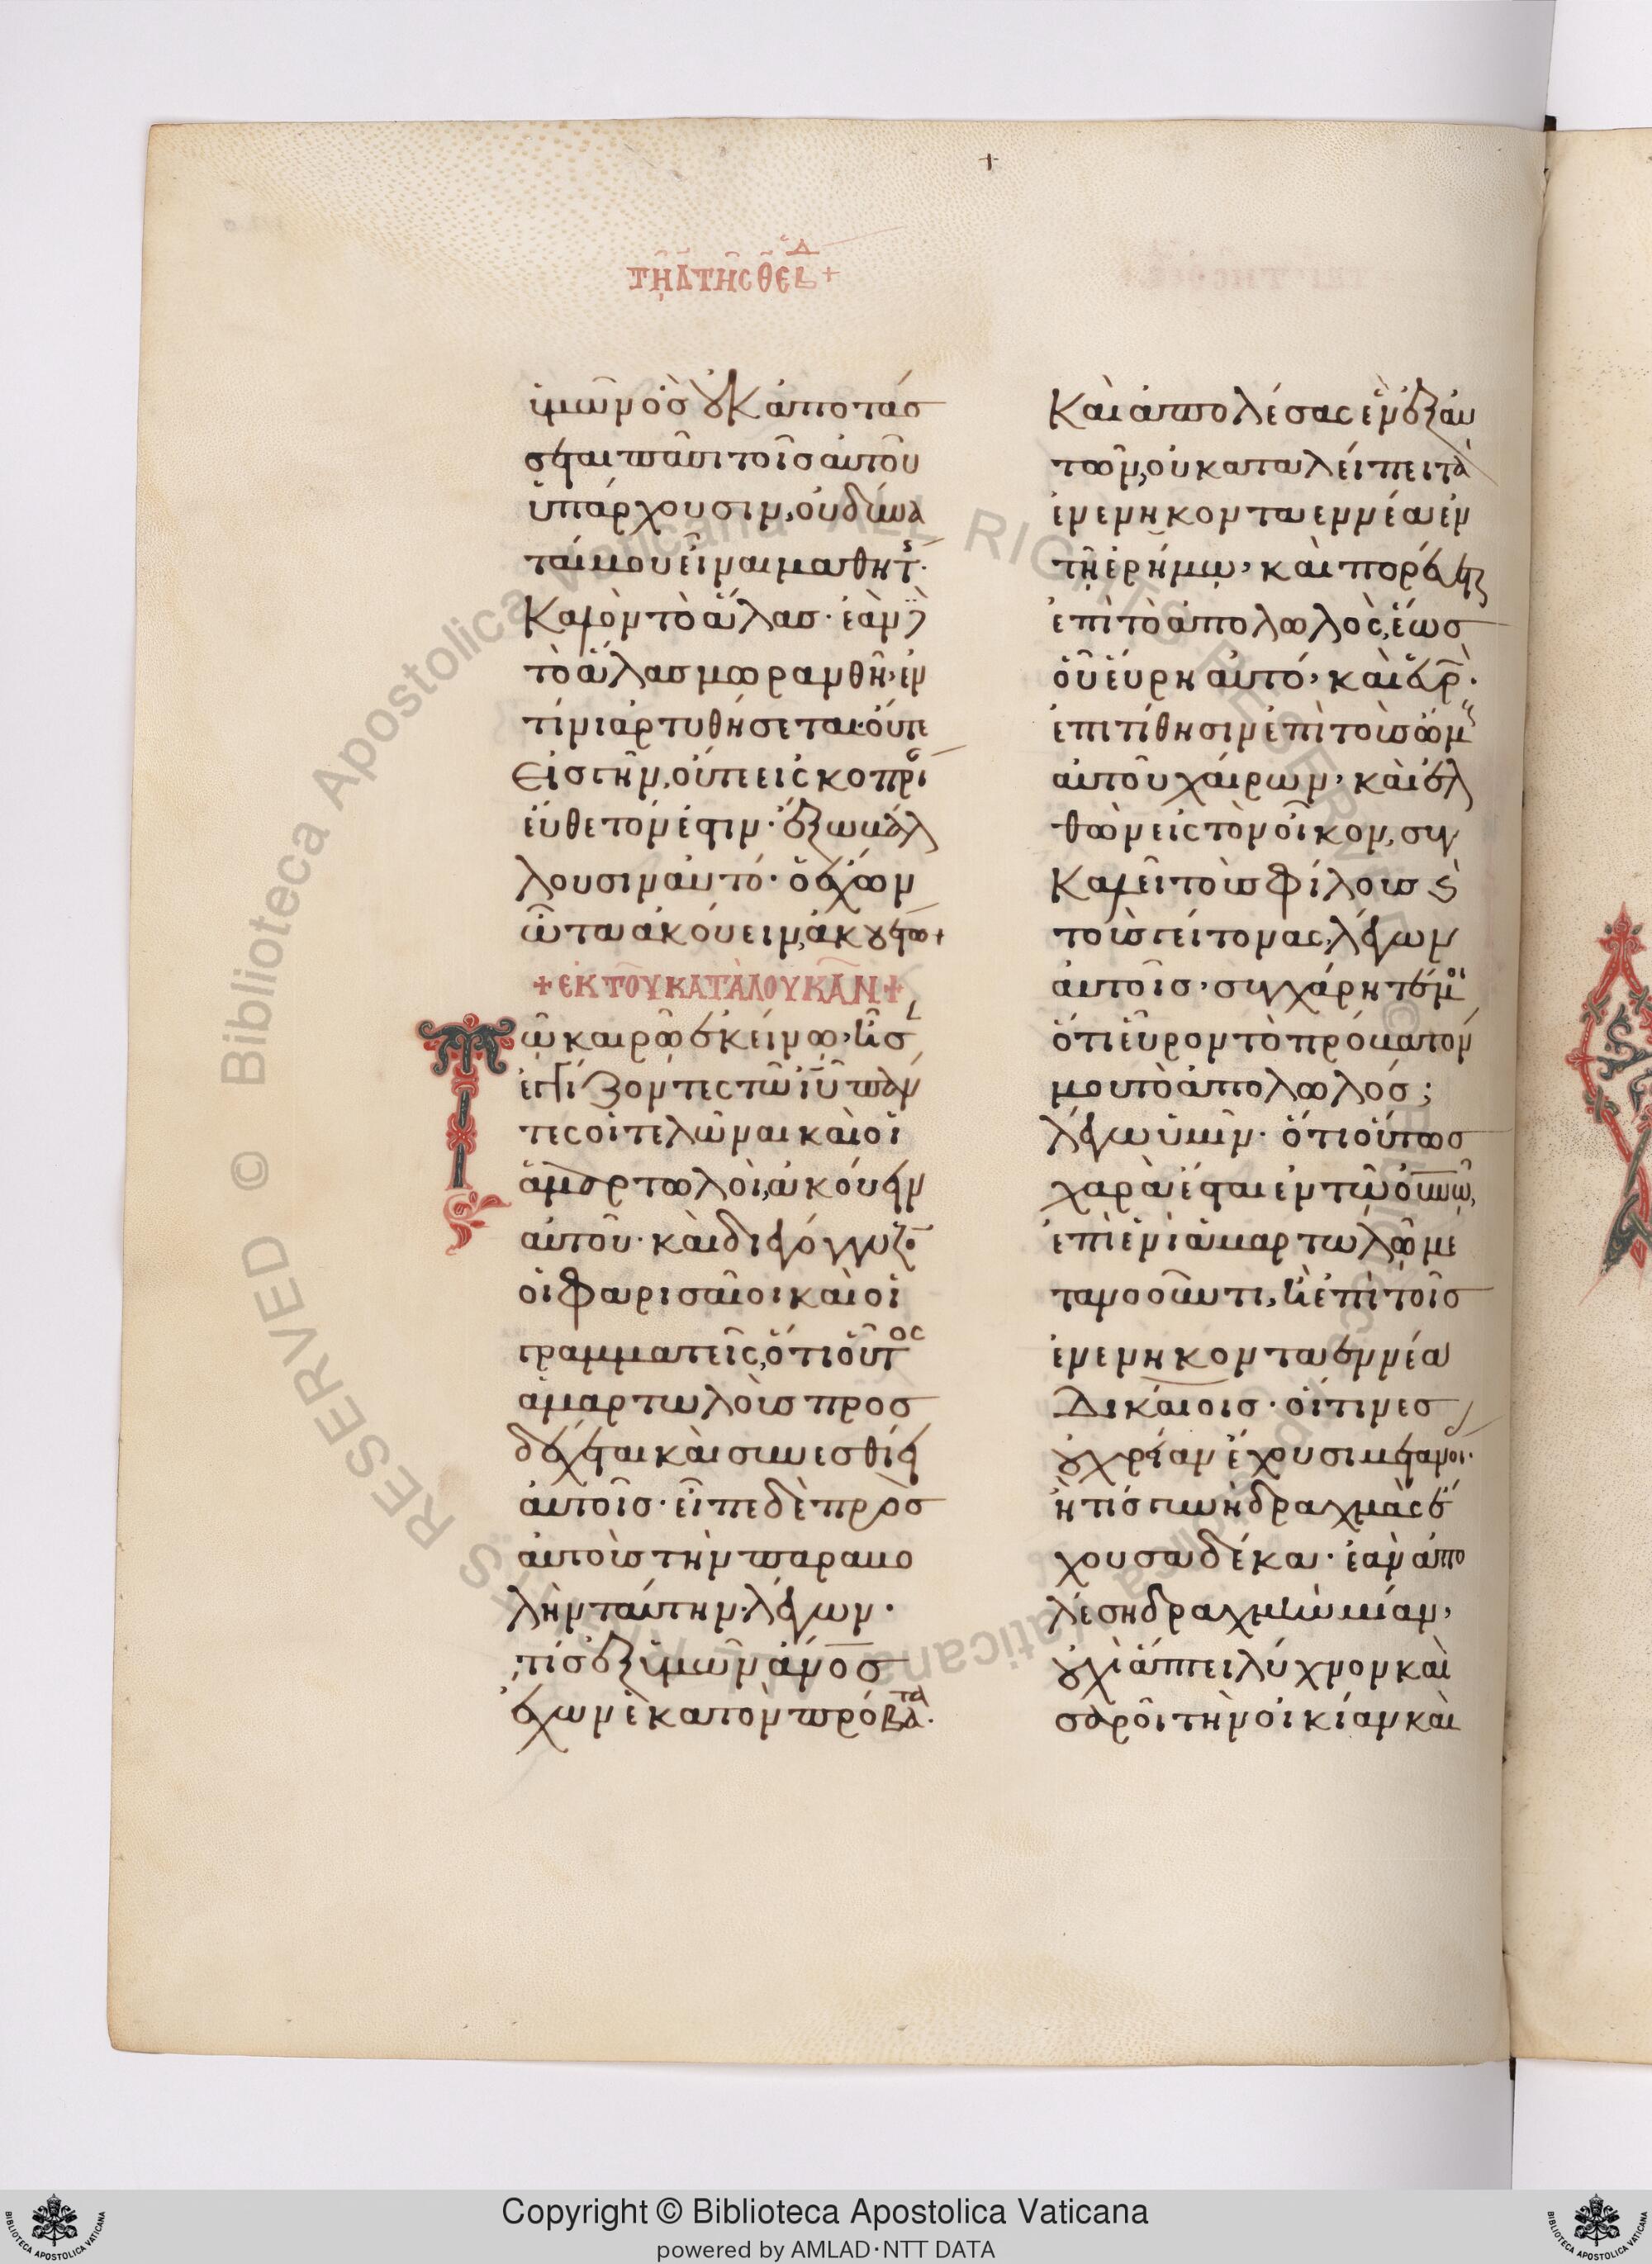 +
τῇ δ τῆς θ ἑβδ +
ὑμῶν ὃς οὐκ ἀποτάσ
σεται πᾶσι τοῖς αὐτοῦ
ὑπάρχουσιν, οὐ δύνα
ταί μου εἶναι μαθητ.
Καλὸν τὸ ἅλας· ἐὰν δὲ
τὸ ἅλας μωρανθῆ, ἐν
τίνι ἀρτυθήσεται· οὔτε
Εἰς γῆν, οὔτε εἰς κοπρί
εὔθετόν ἐστιν· ἔξω βάλ
λουσιν αὐτό· ὁ ἔχων
ὦτα ἀκούειν, ἀκουέτω+
+ ΕΚ ΤΟΥ ΚΑΤΑ ΛΟΥΚΑΝ +
Τῶ καιρῶ ἐκείνω, ἦσ
ἐγγίζοντες τῶ ιυ πάν
τες οἱ τελῶναι καὶ οἱ
ἁμαρτωλοὶ, ἀκούειν
αὐτοῦ· καὶ διεγόγγυζο
οἱ Φαρισαῖοι καὶ οἱ
γραμματεῖς, ὅτι οὗτος
ἁμαρτωλοὺς προσ
δέχεται καὶ συνεσθίει
αὐτοῖς· εἶπε δὲ πρὸς
αὐτοὺς τὴν παραβο
λὴν ταύτην, λέγων·
τίς ἐξ ὑμῶν ανος
ἔχων ἑκατὸν πρόβατα·
Καὶ ἀπολέσας ἓν ἐξ αὐ
τῶν, οὐ καταλείπει τὰ
ἐνενηκονταεννέα ἐν
τῆ ἐρήμω, καὶ πορεύεται
ἐπὶ τὸ ἀπολωλὸς, ἕως
οὗ εὕρη αὐτό, καὶ εὑρ·
ἐπιτίθησιν ἐπὶ τοὺς ὤμ
αὐτοῦ χαίρων, καὶ ἐλ
θὼν εἰς τὸν οἶκον, συγ
Καλεῖ τοὺς φίλους κ
τοὺς γείτονας, λέγων
αὐτοῖς, συγχάρητέ μοι
ὅτι εὗρον τὸ πρόβατόν
μου τὸ ἀπολωλός;
λέγω ὑμῖν· ὅτι οὕτως
χαρὰ ἔσται ἐν τῶ ουνω,
ἐπὶ ἑνὶ ἁμαρτωλῶ με
τανοοῦντι, ἢ ἐπὶ τοῖς
ἐνενηκονταεννέα
Δικαίοις· οἵτινες
οὐ χρείαν ἔχουσι μετανοι·
ἢ τίς γυνὴ δραχμὰς ἔ
χουσα δέκα· ἐὰν ἀπο
λέση δραχμὴν μίαν,
οὐχὶ ἅπτει λύχνον καὶ
σαροῖ τὴν οἰκίαν καὶ
© Biblioteca Apostolica Vaticana ALL RIGHTS RESERVED
Copyright © Biblioteca Apostolica Vaticana
powered by AMLAD·NTT DATA
BIBLIOTECA APOSTOLICA VATICANA
BIBLIOTECA APOSTOLICA VATICANA